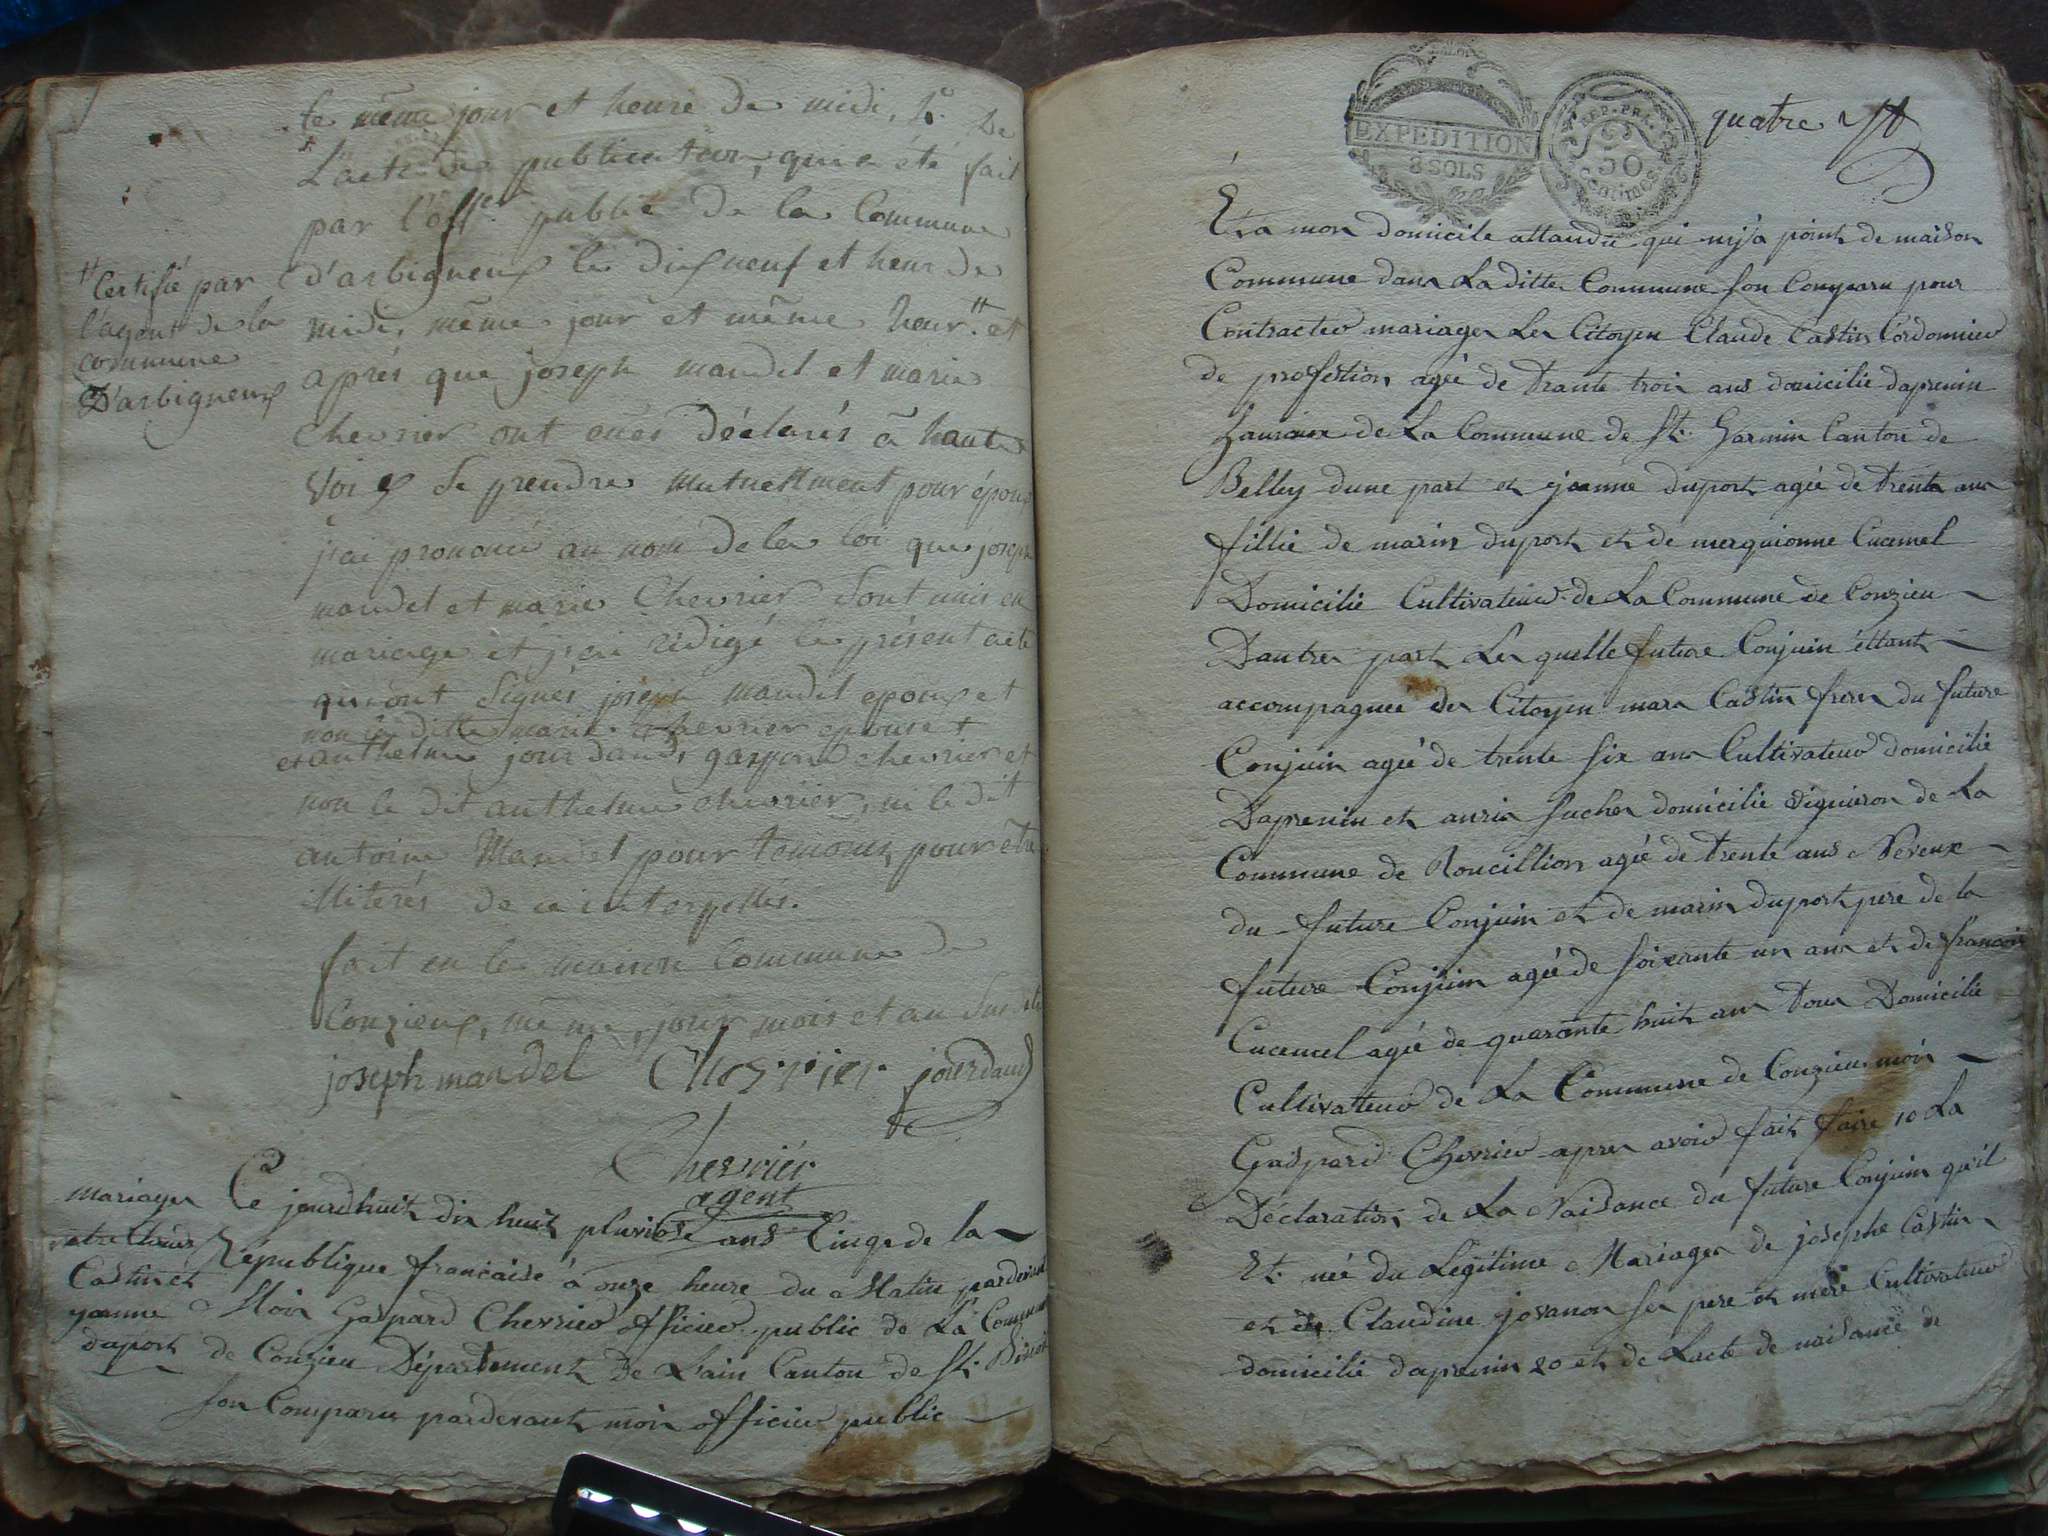 le même jour et heure de midi, 2°. De
L'acte de publication, qui a été fait
par l'offer public de la Commune
d'arbigneux le dix neuf et heur de
midi, même jour et même heur. # et
après que joseph mandel et marie
Chevrier ont eües déclarés a haute
Voix de prendre mutuellment pour épous
j'ai prononcé au nom de la loi que joseph
mandel et marie Chevrier sont unis en
mariage et j'ai rédigé le présent acte
qu'ont signés joseph mandel epoux et
non la ditte marie chevrier epouse +
et anthelme jourdand, gaspard chevrier et
non le dit anthelme chevrier, ni le dit
antoine Mandel pour temoins pour etre
illiterés de ce interpellés.
fait en la maison Commune de
Conzieux, même jour mois et an susdits
joseph mandel Chevrier jourdand
Chevrier
agent
# Certifié par
l'agent de la
commune
D'arbigneux
mariages
entre Claude
Castin et
yoanne
duport
Ce jourdhuit dix huit pluviose ans Cinqe de la
République francaise à onze heure du Matin pardevant
Moin Gaspard Chevrier officier public de La Commune
de Conzieu Département De Lain Canton de St. Benoit
son Comparu pardevant moin officier public
EXPEDITION
8 SOLS
REP. FRA.
50
Centimes
quatre
Et a mon domicile attandu qui nyja point de maison
Commune dans La ditte Commune son Comparu pour
Contracter mariages Le Citoyen Claude Castin Cordonnier
de profestion agée de trante troix ans domicilié dapremin
de La Commune de St. Garmin Canton de
Belley dune part et yoanne duport agée de trente ans
fillie de marin duport et de merquionne Cucemel
Domicilié Cultivateur de La Commune de Conzieu
Dautres part Les quelle future Conjuin éttant
accompagnée de Citoyen marc Castin freres du future
Conjuin agée de trente six ans Cultivateur domicilié
Dapremin et sucher domicilié vigniron de La
Commune de Roucillion agée de trente ans Neveux
du future Conjuin et de marin duport pere de la
future Conjuin agée de soixante un ans et de francois
Cucemel agée de quarante huit ans tous Domicilié
Cultivateur de La Commune de Conzieu moin
Gaspard Chevrier apres avoir fait faire 1o La
Déclaration de La Naisance du future Conjuin qu'il
Et née du Légitime Mariages de josephe Castin
et de Claudine jovanon ses pere et mere Cultivateur
domicilié dapremin 2o et de Lacte de naisance de